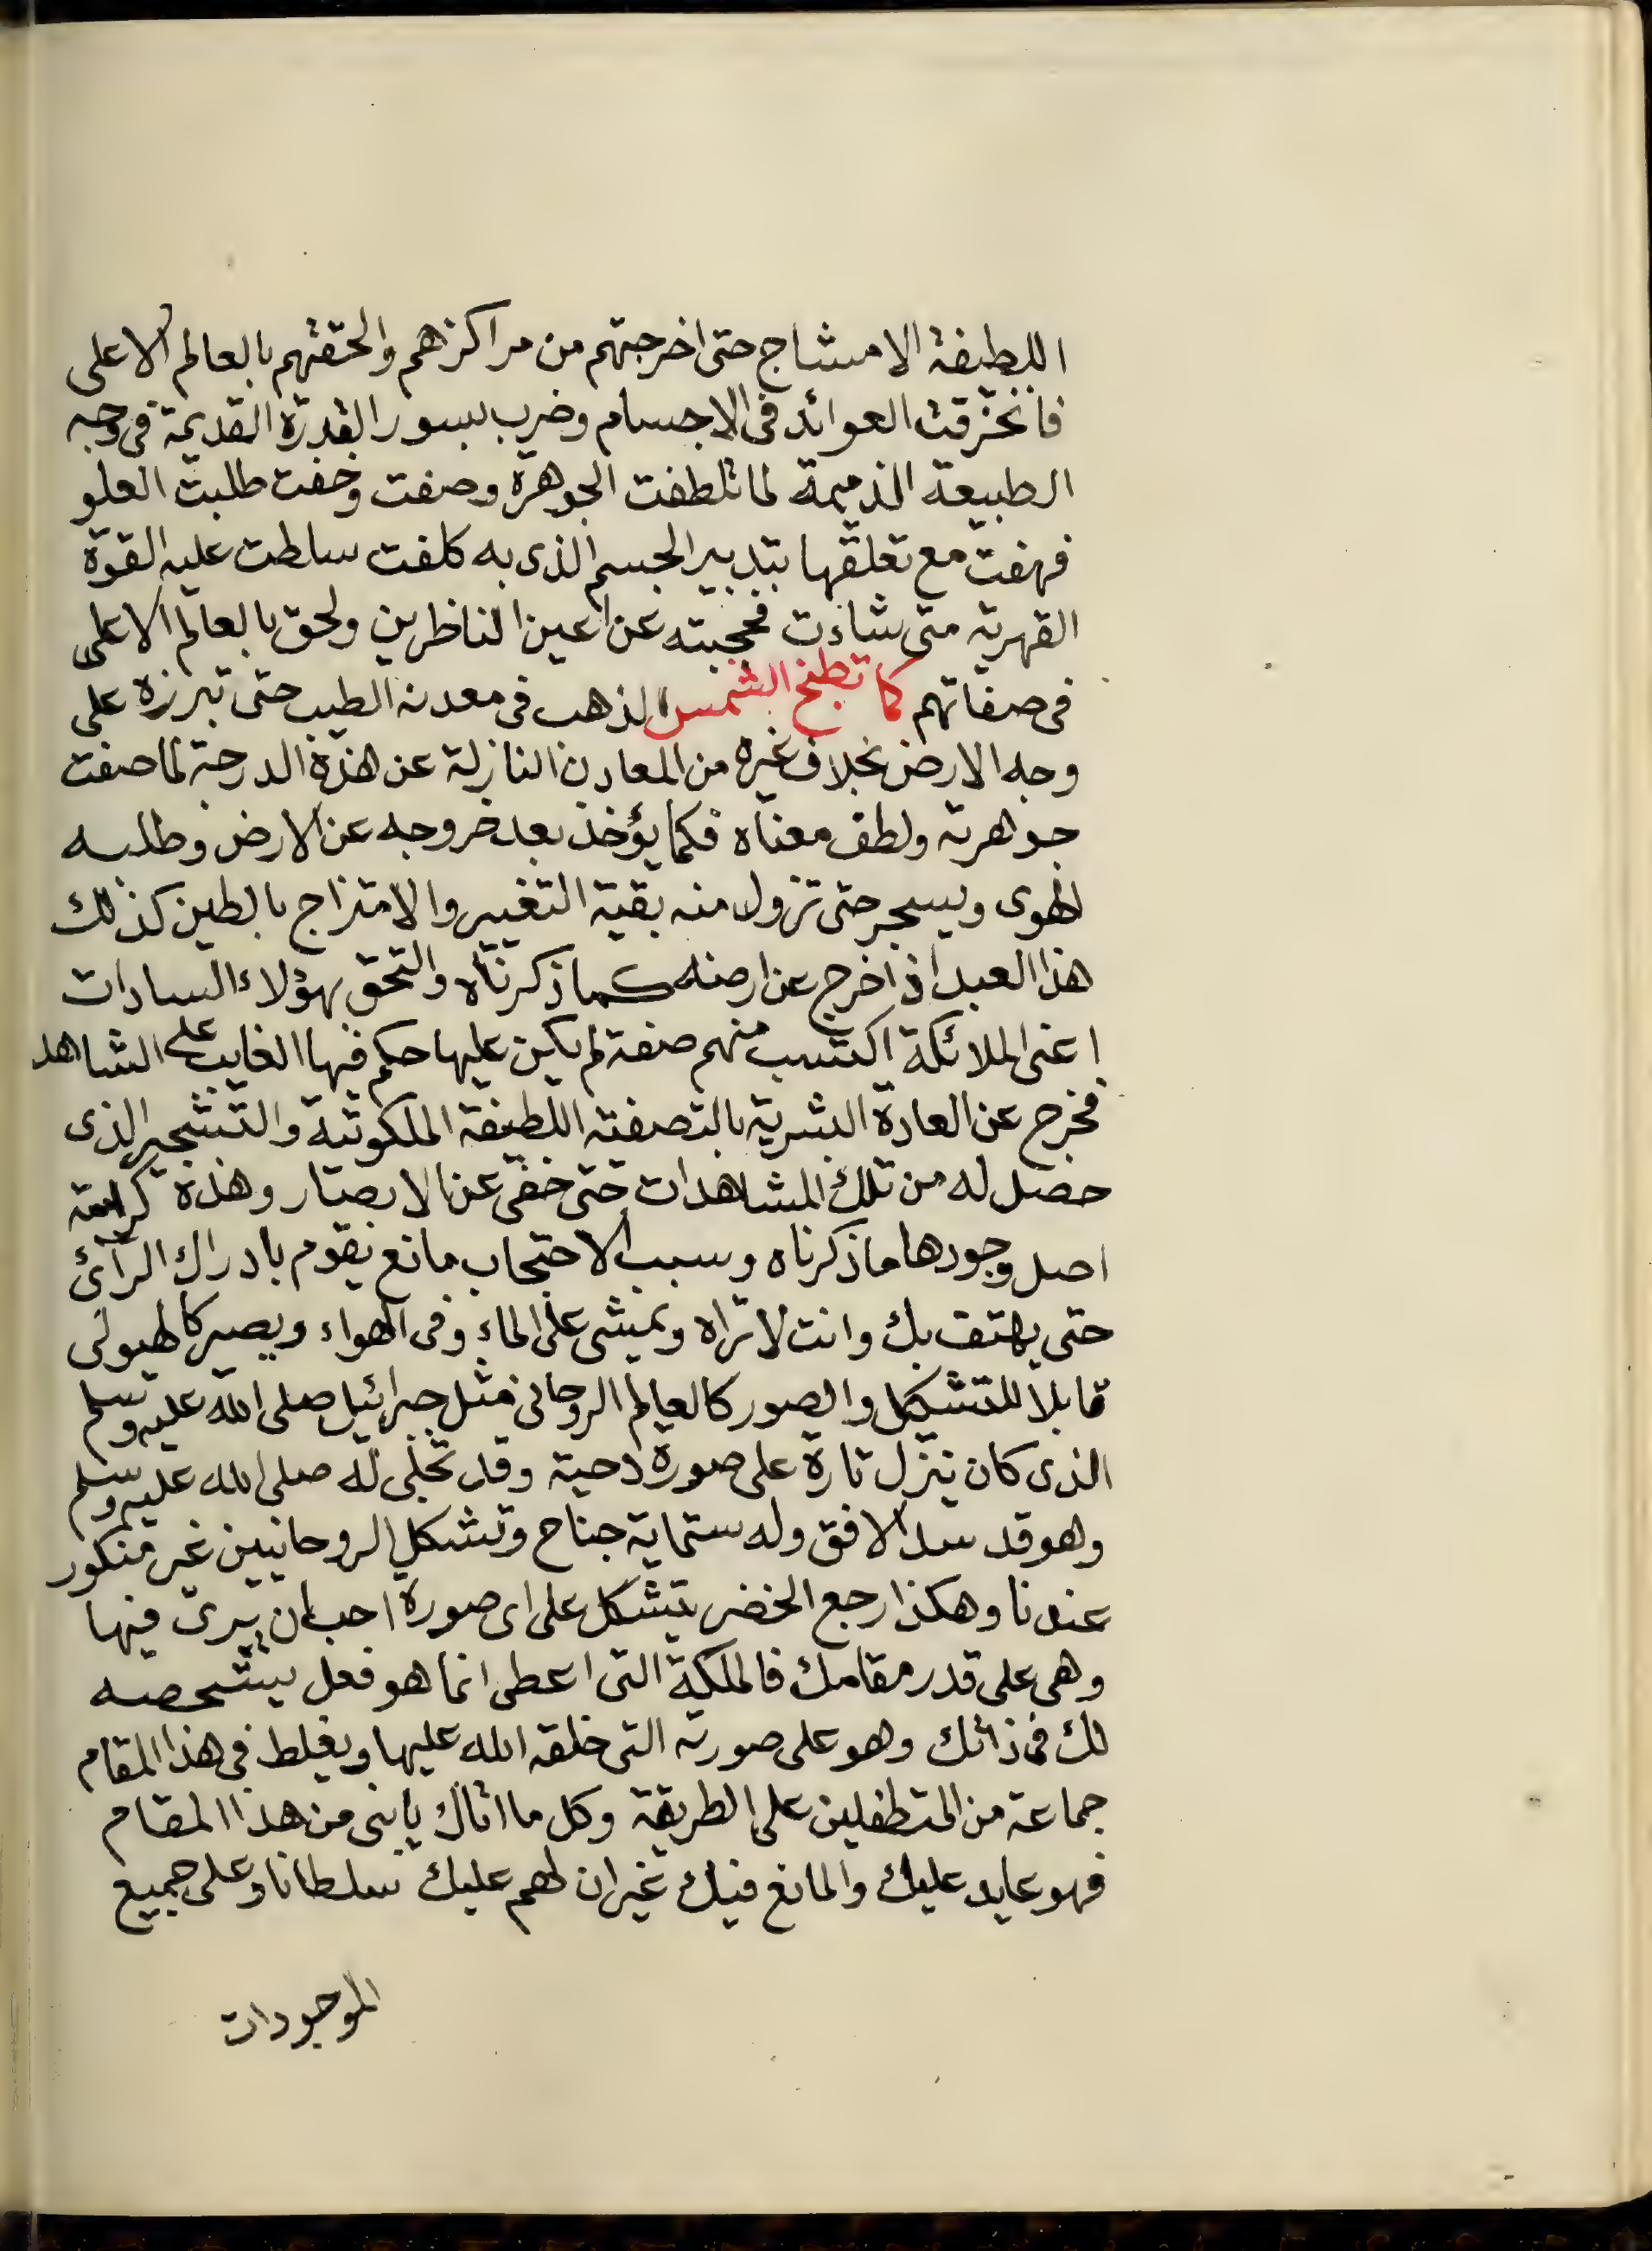 اللطيفة الامشاج حتى اخرجتهم من مراكزهم والحقتهم بالعالم الاعلى
فانخرقت العوائد فى الاجسام وضرب بسور القدرة القديمة فى وجه
الطبيعة الذميمة لما تلطفت الجوهرة وصفت وخفت طلبت العلو
فهفت مع تعلقها بتدبير الجسم الذى به كلفت سلطت عليه القوة
القهرية متى شاءت فحجبته عن اعين الناظرين ولحق بالعالم الاعلى
فى صفاتهم كما تطبخ الشمس الذهب فى معدنه الطيب حتى تبرزه على
وجه الارض بخلاف غيره من المعادن النازلة عن هذه الدرجة لما صفت
جوهريته ولطف معناه فكما يؤخذ بعد خروجه عن الارض وطلبه
الهوى ويسجر حتى تزول منه بقية التغيير والامتزاج بالطين كذلك
هذا العبد اذ اخرج عن ارضه كما ذكرناه والتحق بهؤلاء السادات
اعنى الملائكة اكتسب منهم صفة لم يكن عليها حكم فيها الغايب على الشاهد
فخرج عن العادة البشرية بالتصفية اللطيفة الملكوتية والتشجير الذى
حصل له من تلك المشاهدات حتى خفى عن الابصار وهذه كرامة
اصل وجودها ما ذكرناه وسبب الاحتجاب مانع يقوم بادراك الرآئ
حتى يهتف بك وانت لا تراه ويمشى على الماء وفى الهواء ويصير كالهيولى
قابلا للتشكيل والصور كالعالم الروحانى مثل جبرائيل صلى الله عليه وسلم
الذى كان ينزل تارة على صورة دحية وقد تجلى له صلى الله عليه وسلم
وهو قد سد الافق وله ستماية جناح وتشكل الروحانيين غير منكور
عندنا وهكذا رجع الخضر يتشكل على اى صورة احب ان يرى فيها
وهى على قدر مقامك فالملكة التى اعطى انما هو فعل يشخصه
لك فى ذاتك وهو على صورته التى خلقه الله عليها ويغلط فى هذا المقام
جماعة من المتطفلين على الطريقة وكل ما اتاك يا بنى من هذا المقام
فهو عايد عليك والمانع فيك غير ان لهم عليك سلطانا وعلى جميع
الموجودات